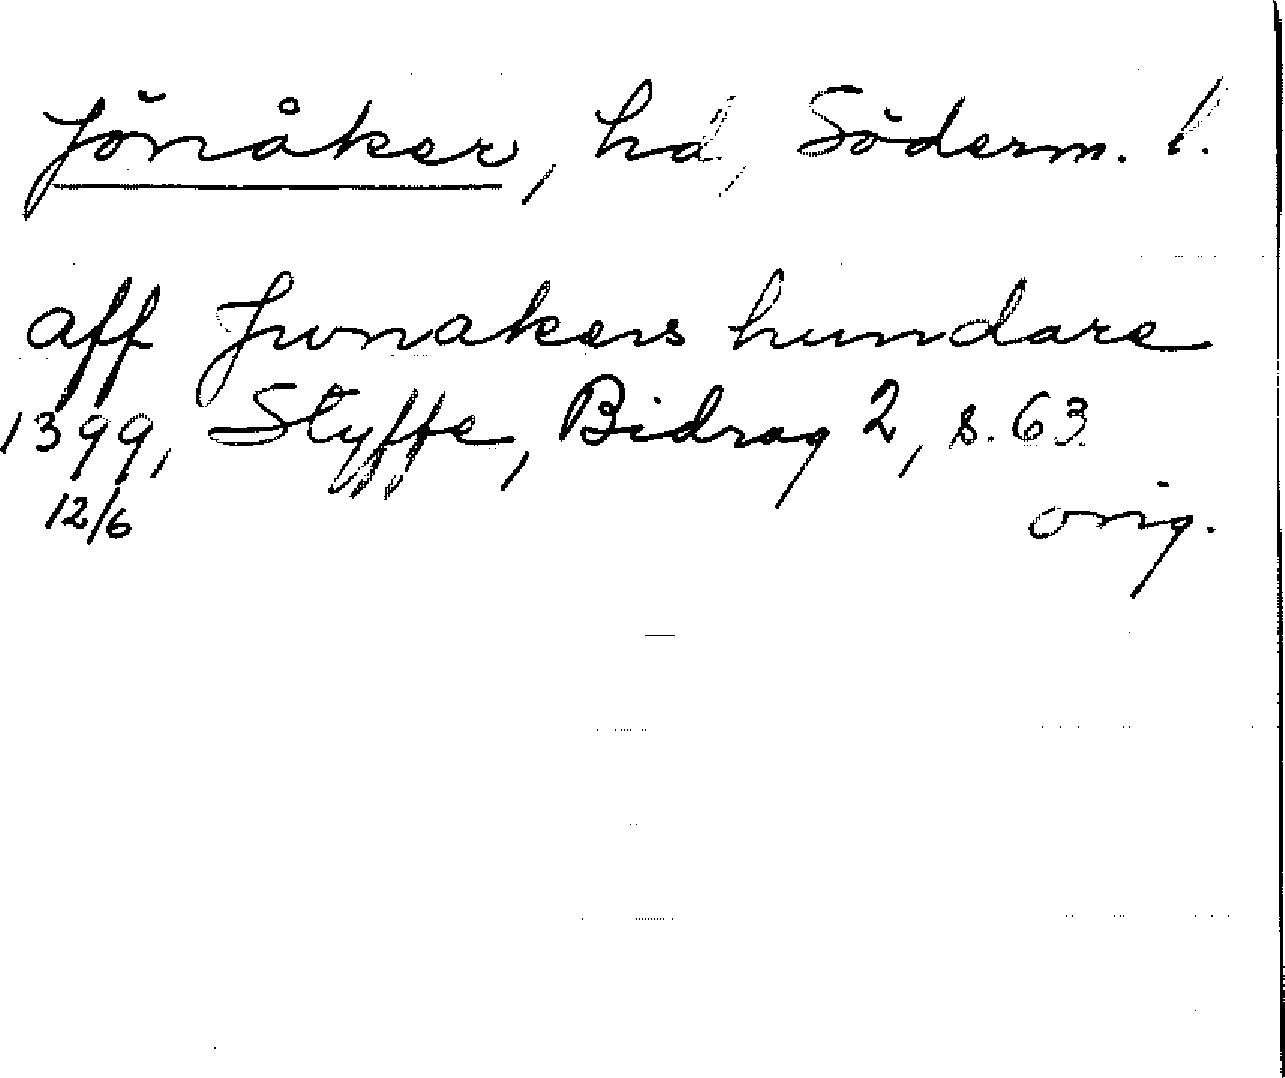 Jönåker, hd, Söderm. l.
aff Jwnakers hundare
1399, Styffe, Bidrag 2, s. 63
12/6 orig.